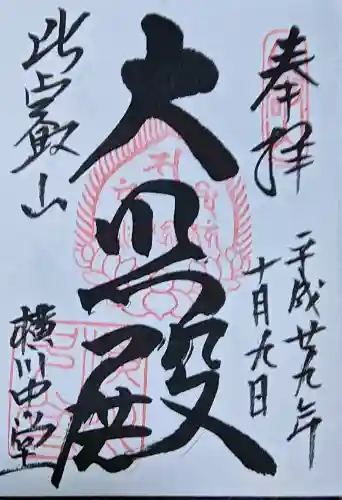 奉拝
平成廿九年
十月九日
大悲殿
比叡山
横川中堂